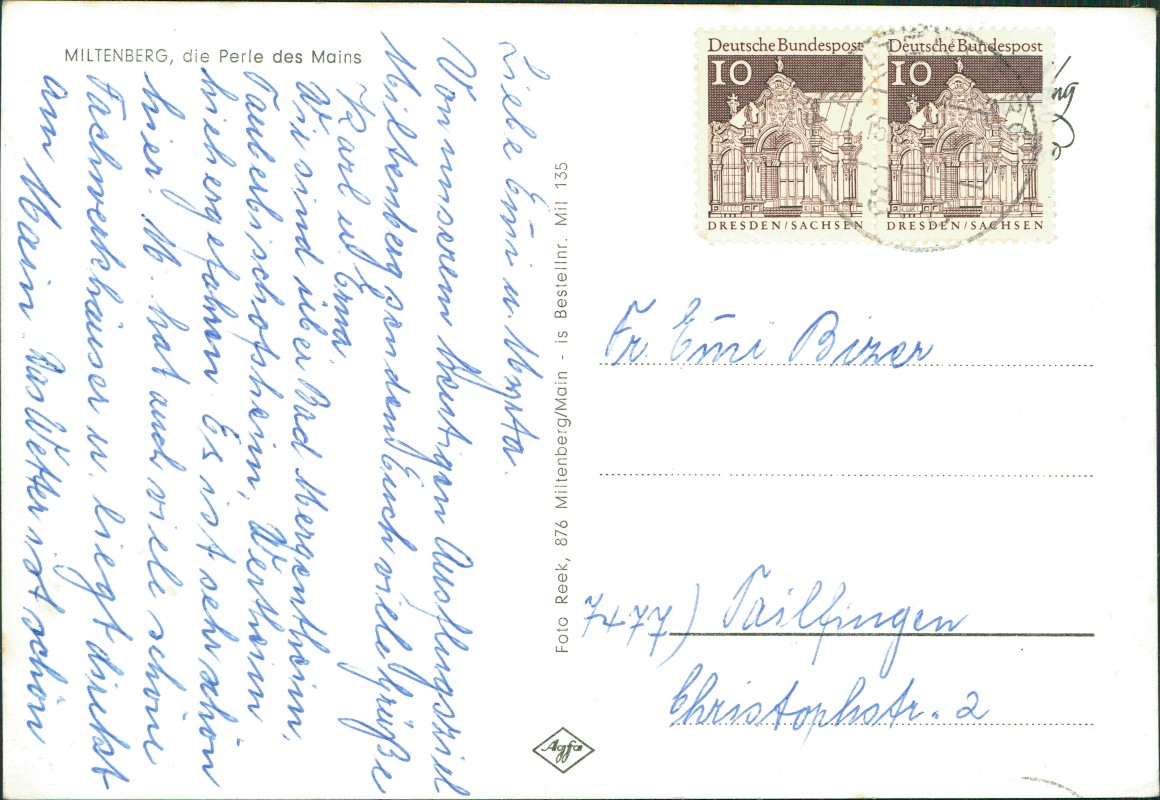 MILTENBERG, die Perle des Mains
Liebe Emi u. Myrta.
Von unserem heutigen Ausflugsziel
Miltenberg senden Euch viele Grüße
Karl u. Erna
Wir sind über Bad Mergentheim,
Tauberbischofsheim, Wertheim
hierhergefahren. Es ist sehr schön
hier. M. hat auch viele schöne
Fachwerkhäuser u. liegt direkt
am Main. Das Wetter ist schön
Foto Reek, 876 Miltenberg/Main - is Bestellnr. Mil 135
Agfa
Deutsche Bundespost
10
DRESDEN/SACHSEN
Deutsche Bundespost
10
DRESDEN/SACHSEN
Fr. Emi Bizer
7477) Tailfingen
Christophstr. 2